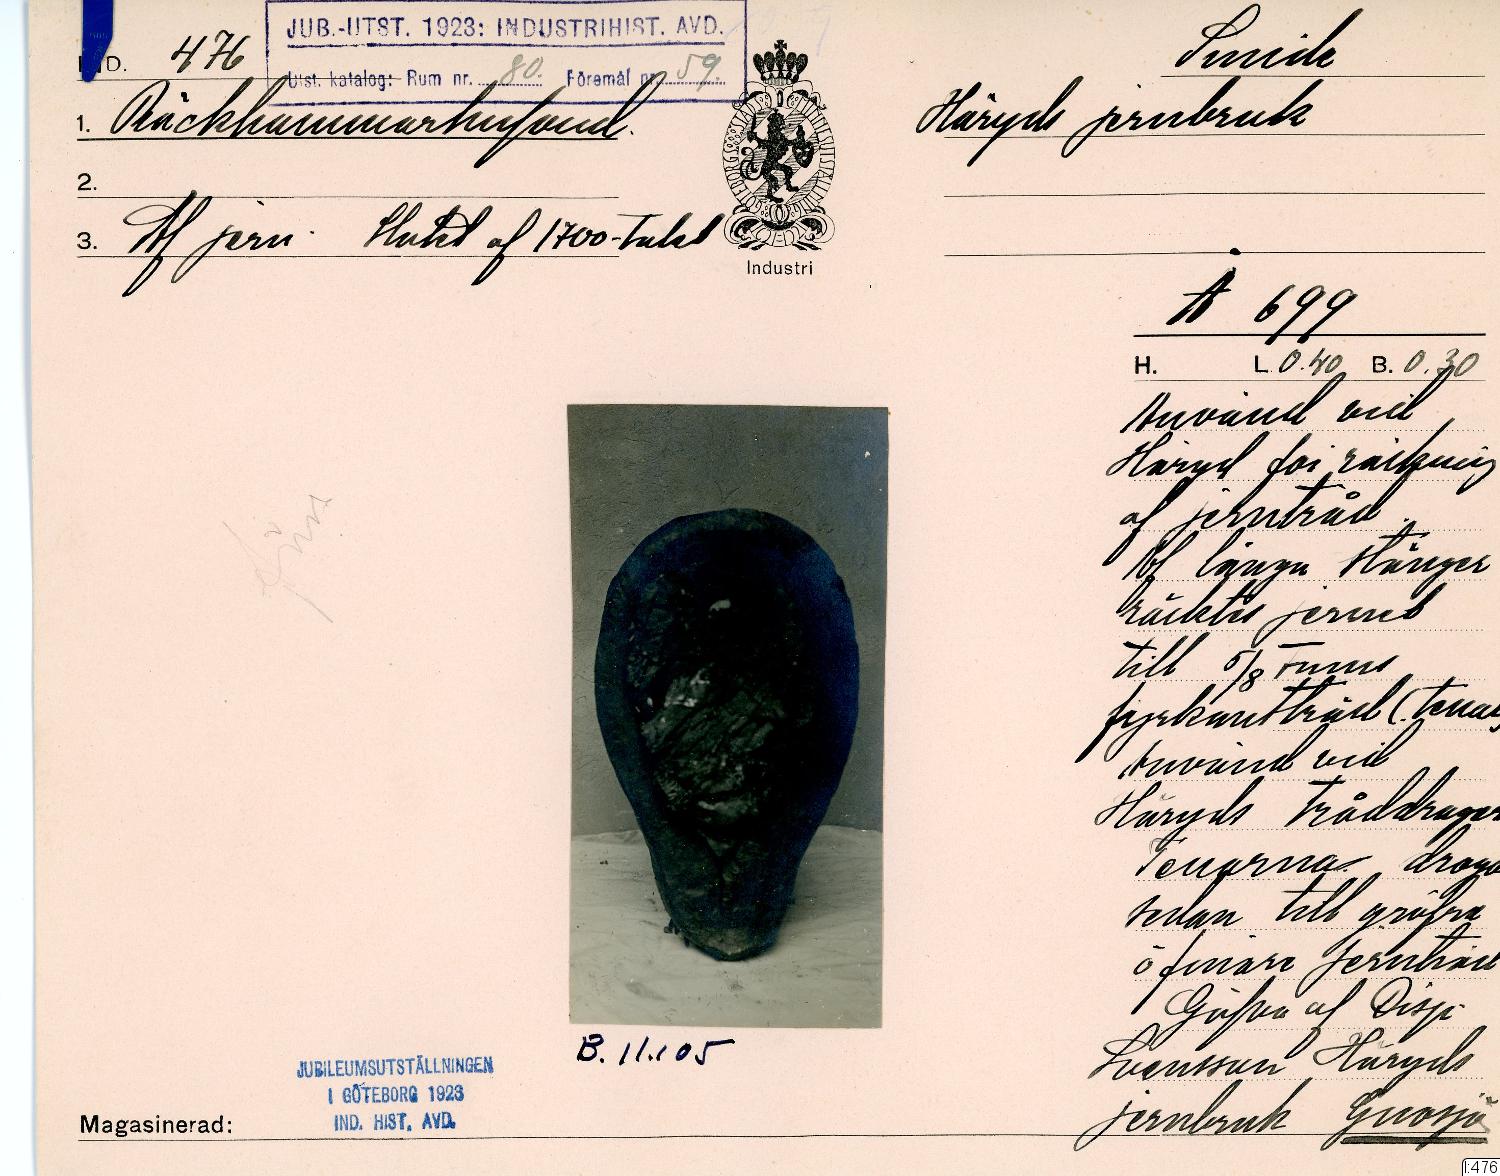 JUB.-UTST. 1923: INDUSTRIHIST. AVD.
Utst. katalog: Rum nr. 80. Föremål nr. 59.
IND. 476
1. Räckhammarhufvud.
2.
3. Af jern. Slutet af 1700-talet
GÖTEBORGS STADS JUBILEUMSUTSTÄLLNING
Industri
Smide
Häryds jernbruk
Å 699
H. L. 0.40 B. 0.30
Använd vid
Häryd för räckning
af jerntråd.
Af långa stänger
räcktes jernet
till 5/8 tums
fyrkanttråd (tenar
Använd vid
Häryds tråddrageri
Tenarna drogs
sedan till gröfre
o finare jerntråd
Gåfva af Disp.
Svensson Häryds
jernbruk Gnosjö
järn
B. 11.105
JUBILEUMSUTSTÄLLNINGEN
I GÖTEBORG 1923
IND. HIST. AVD.
Magasinerad:
I:476